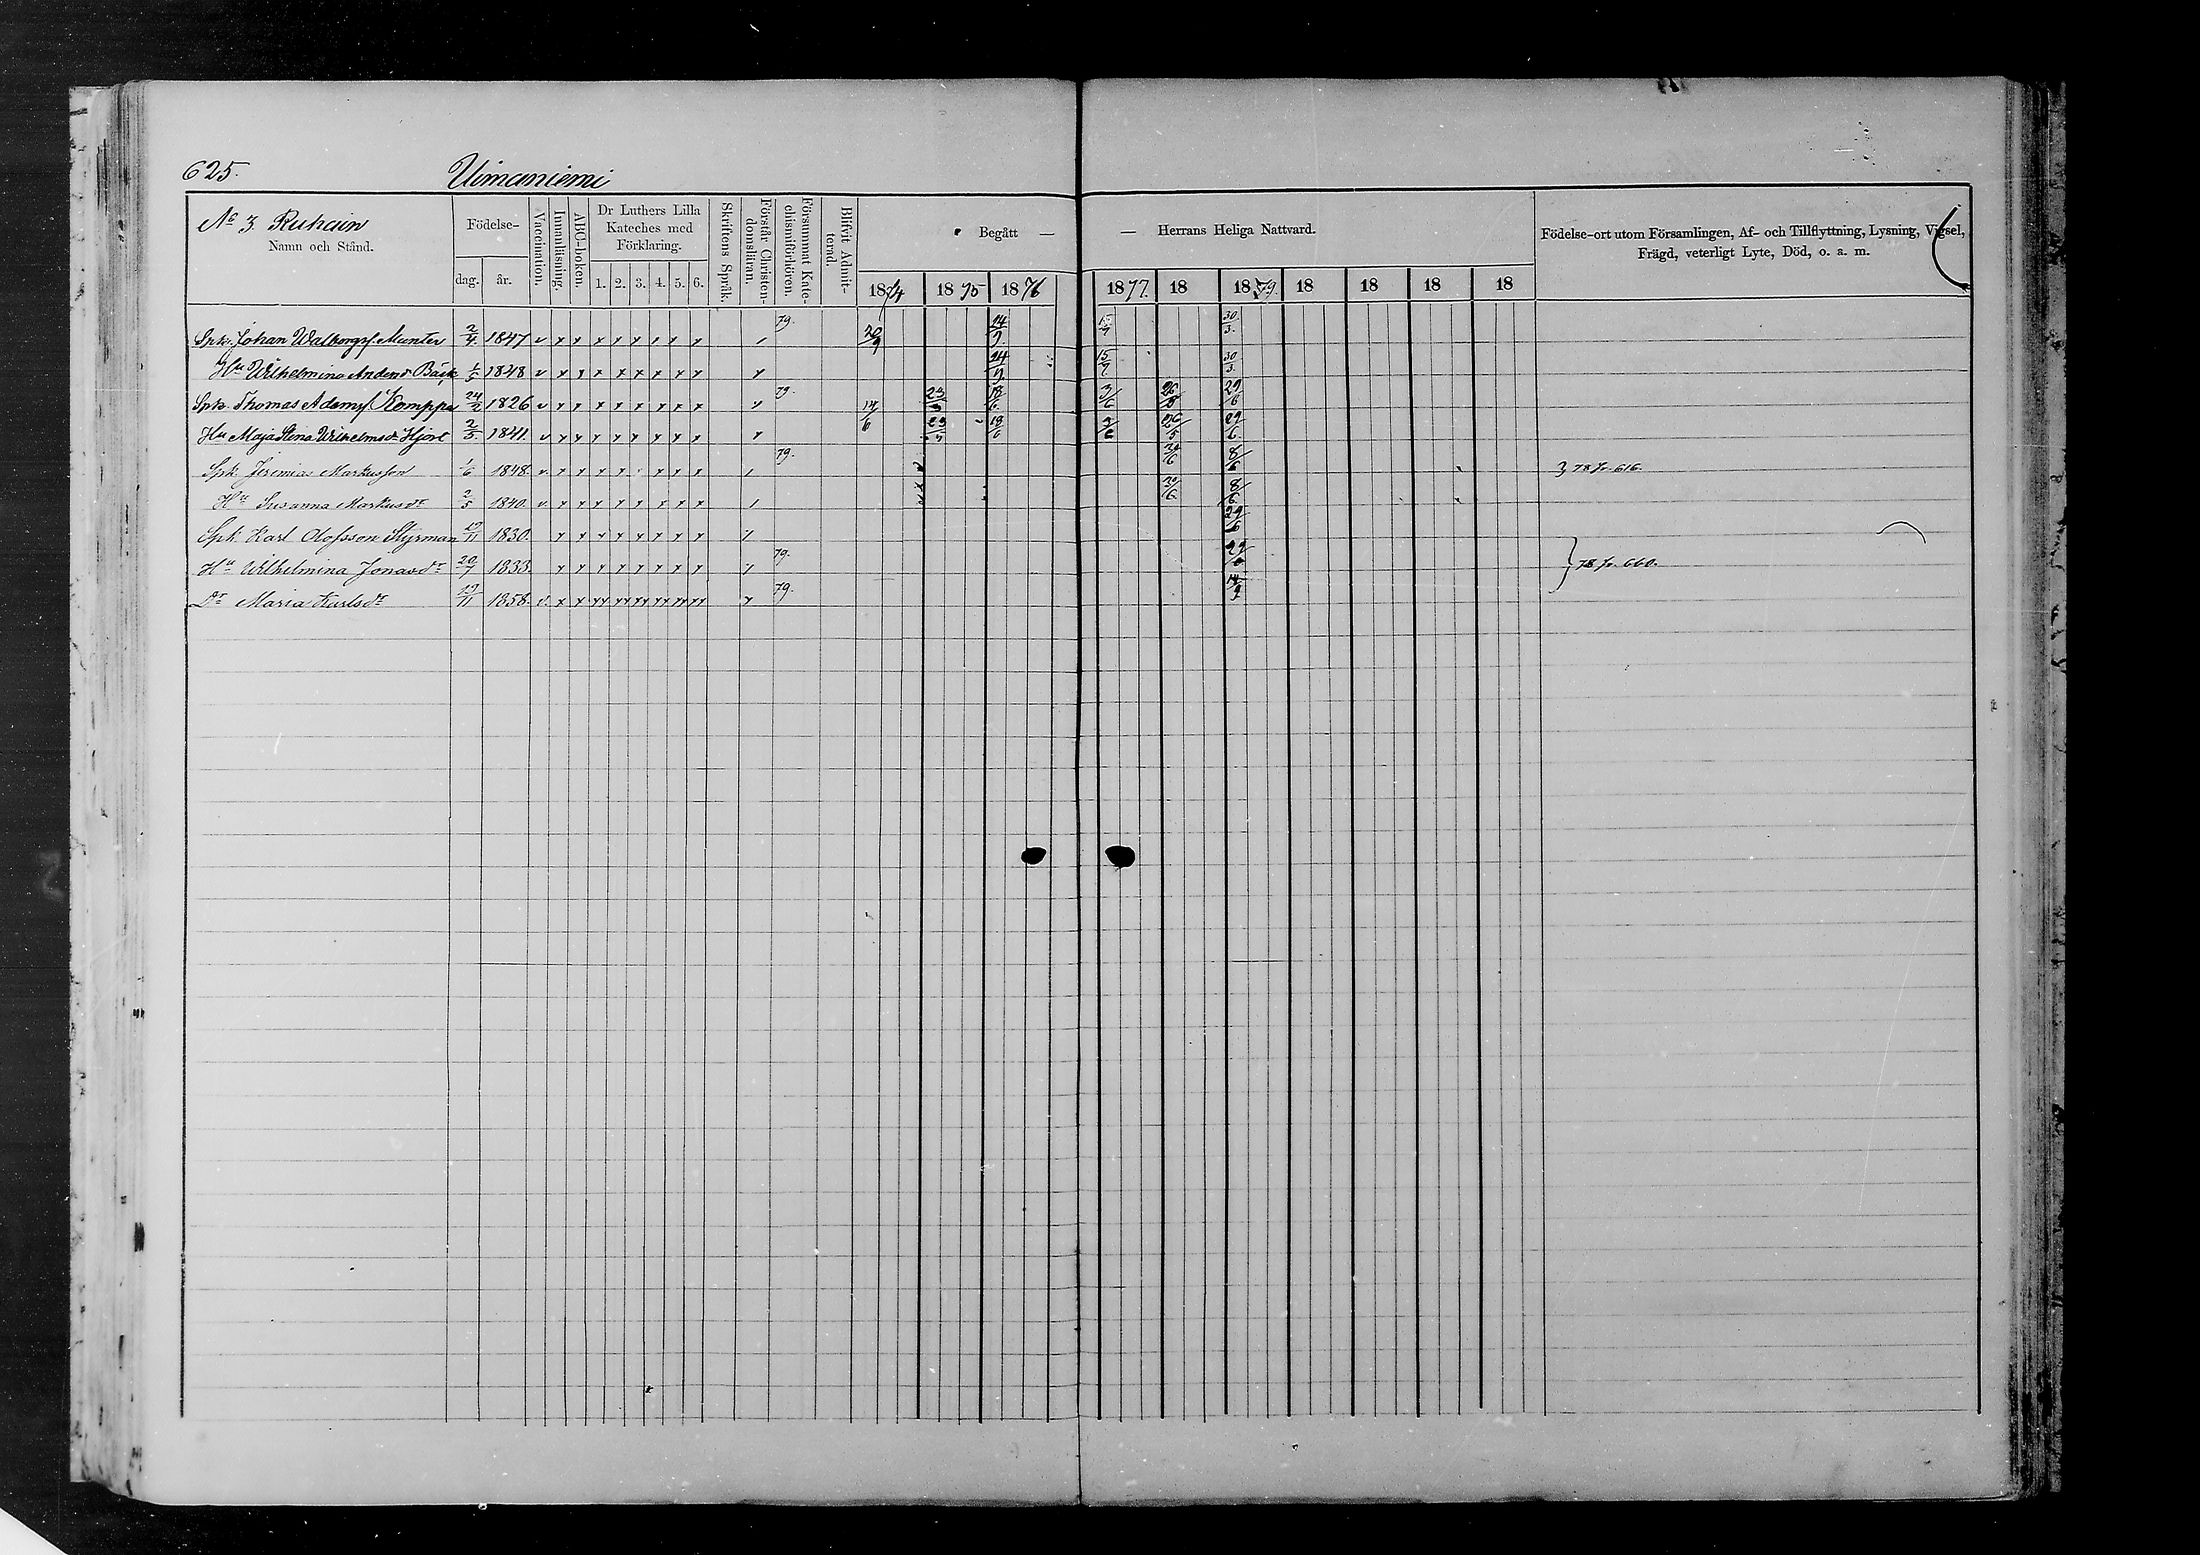 625. Uimaniemi
No 3 Ruhain
Namn och Stånd.
Födelse-
dag. år.
Vaccination.
Innanläsning.
ABC-boken.
Dr Luthers Lilla
Kateches med
Förklaring.
1. 2. 3. 4. 5. 6.
Skriftens Språk.
Förstår Christen-
domsläran.
Försummat Kate-
chismiförhören.
Blifvit Admit-
terad.
Begått — — Herrans Heliga Nattvard.
1874 1875 1876 1877. 18 1879. 18 18 18 18
Födelse-ort utom Församlingen, Af- och Tillflyttning, Lysning, Vigsel,
Frägd, veterligt Lyte, Död, o. a. m.
Sptr. Johan Walborgsf. Munter 2/4 1847 v x x x x x x x x 79. 20/9 24/9 15/7 30/3.
Hu Wilhelmina Andersdr Bäck 1/5 1848 v x x x x x x x x x 24/9 15/7 30/3.
Sptr. Thomas Adamsf. Komppa 24/2 1826 v x x x x x x x x 79. 14/6 18/6. 3/6 29/6
Hu Maja Stena Wilhelmsdr Hjort 2/5. 1841. v x x x x x x x x 18/6 26/5 29/6.
Sptr. Jeremias Markusson 1/6 1848. v. x x x x x x x 79. 8/6 78 fr. 616.
Hu Susanna Markusdr 2/5 1840. v. x x x x x x x x 8/6.
Sptr. Karl Olofsson Styrman 19/11 1830. x x x x x x x x 29/6
Hu Wilhelmina Jonasdr 20/7 1833 x x x x x x x x 79. 78 fr. 660.
Dr Maria Karlsdr 19/11 1858. v. x x xx xx xx xx xx xx x 79. 14/9